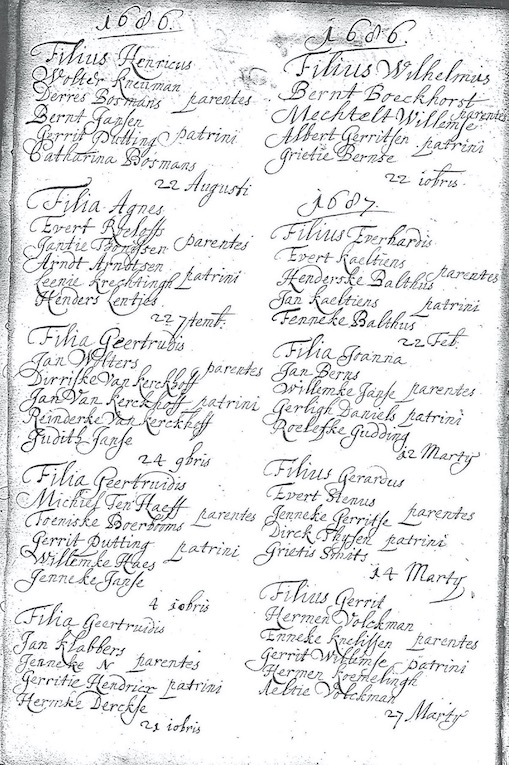 1686.
Filius Henricus
Wolter Kneuman
Derres Bosmans parentes
Bernt Jansen
Gerrit Dutting patrini
Catharina Bosmans
22 Augusti
Filia Agnes
Evert Roeloffs
Jantie parentes
Arndt Arndtsen
Leenie Krechtingh patrini
Henders Lentjes
22 7temb.
Filia Geertrudis
Jan Wolters
Dirriske Van Kerckhoff parentes
Jan Van Kerckhoff patrini
Reinderke Van Kerckhoff
Judith Janse
24 9bris
Filia Geertruidis
Michiel Ten Haeff
Toeniske Boerbooms parentes
Gerrit Dutting
Willemke Haes patrini
Jenneke Janse
4 10bris
Filia Geertruidis
Jan Klabbers
Jenneke N parentes
Gerritie Hendricx patrini
Hermke Derckse
21 10bris
1686.
Filius Wilhelmus
Bernt Boeckhorst
Mechtelt Willemse parentes
Albert Gerritsen patrini
Grietie Bernse
22 10bris.
1687.
Filius Everhardis
Evert Kaeltiens
Henderske Balthus parentes
Jan Kaeltiens patrini
Fenneke Balthus
22 Feb.
Filia Joanna
Jan Berns
Willemke Janse parentes
Gerligh Daniels patrini
Roelefke Gudding
12 Marty
Filius Gerardus
Evert Stenus
Jenneke Gerritse parentes
Dirck Thysen patrini
Grietis Smits
14 Marty
Filius Gerrit
Hermen Volckman
Enneke Knelissen parentes
Gerrit Willemse patrini
Hermen Koemelingh
Aeltie Volckman
27 Marty